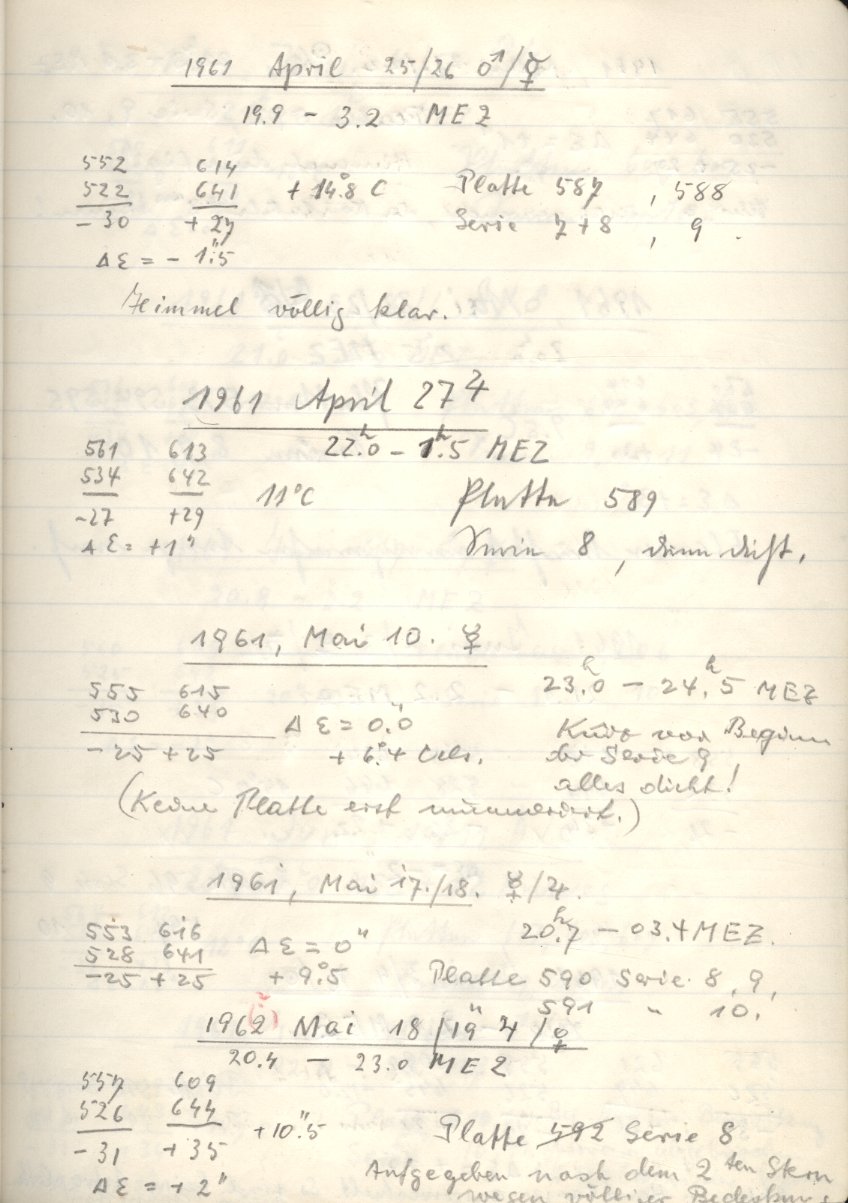 1961 April 25/26 ♂/☿
19.9 – 3.2 MEZ
552 614
522 641 + 14.°8 C Platte 587, 588
- 30 + 27 Serie 7+8, 9.
Δ Ɛ = - 1."5
Himmel völlig klar.
1961 April 27 ♃
22.ʰ0 – 1.ʰ5 MEZ
561 613
534 642 11°C Platte 589
-27 +29
Δ Ɛ = +1" Serie 8, dann dicht.
1961, Mai 10. ☿
23.ʰ0 – 24.ʰ5 MEZ
555 615
530 640 Δ Ɛ = 0."0 Kurz vor Beginn
-25 +25 + 6.°4 Cels. der Serie 9
alles dicht!
(Keine Platte erst nummeriert.)
1961, Mai 17./18. ☿/♃
20.ʰ7 – 03.4 MEZ.
553 616
528 641 Δ Ɛ = 0"
-25 +25 + 9.°5 Platte 590 Serie 8, 9,
591 " 10.
1962 (?) Mai 18/19 ♃/♀
20.4 – 23.0 MEZ
557 609
526 644 +10.°5 Platte 592 Serie 8
- 31 + 35
Δ Ɛ = + 2" Aufgegeben nach dem 2ten Stern
wegen völliger Bedeckung